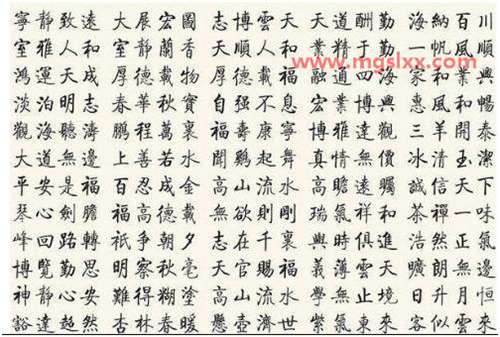 寧靜致遠 大展宏圖 志博雲天 天道酬勤 海納百川
室雅人和 室靜蘭香 天順人和 業精于勤 一帆風順
鴻運天成 厚德載物 厚德載福 融通四海 家和業興
淡泊明志 春華秋實 自强不息 宏業博興 惠風和暢
觀海聽濤 鵬程萬裏 福壽康寧 博雅達觀 三羊開泰
大道無邊 上善若水 聞鷄起舞 真情無價 冰清玉潔
平安是福 百忍成金 高山流水 高瞻遠矚 誠信天下
琴心劍膽 福高德載 無欲則剛 瑞氣祥和 茶禪一味
峰回路轉 祇争朝夕 志在千裏 與時俱進 浩然正氣
博覽勤思 明察秋毫 天官賜福 義薄雲天 曠無邊
神靜心安 難得糊塗 高山流水 學無止境 日升月恒
豁達超然 杏林春暖 懸壺濟世 紫氣東來 客似雲來
www.mgslxx.com